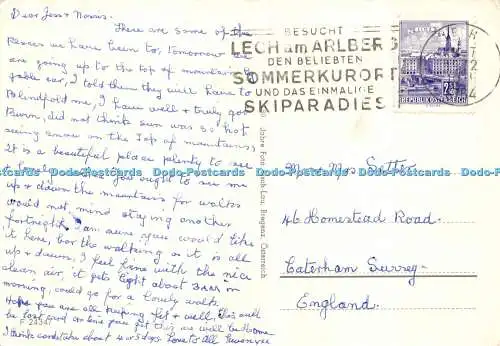 Dear Jess & Norris.
There are some of the
places we have been to, tomorrow we
are going up to the top of mountains by
cable car, I told them they will have to
Blindfold me, I have well & truly got
Burn, did not think sun was so hot
seeing snow on the Top of mountains
It is a beautiful place plenty to see
you ought to see me
up & down the mountains for walks
would not mind staying another
fortnight. I am sure you would like
it here, bar the walking as it is all
up & down, I feel fine with the nice
clean air, it gets light about 3 am in
morning, could go for a lovely walk
Hope you are all keeping fit & well, This will
be last card as time you get this we will be Home
I think cards take about 4 or 5 days. Love to all
F 24347
BESUCHT
LECH am ARLBERG
DEN BELIEBTEN
SOMMERKURORT
UND DAS EINMALIGE
SKIPARADIES
LECH
REPUBLIK ÖSTERREICH
Bregenz, Österreich
Mr & Mrs
46 Homestead Road.
Caterham Surrey
England.
www.delcampe.net